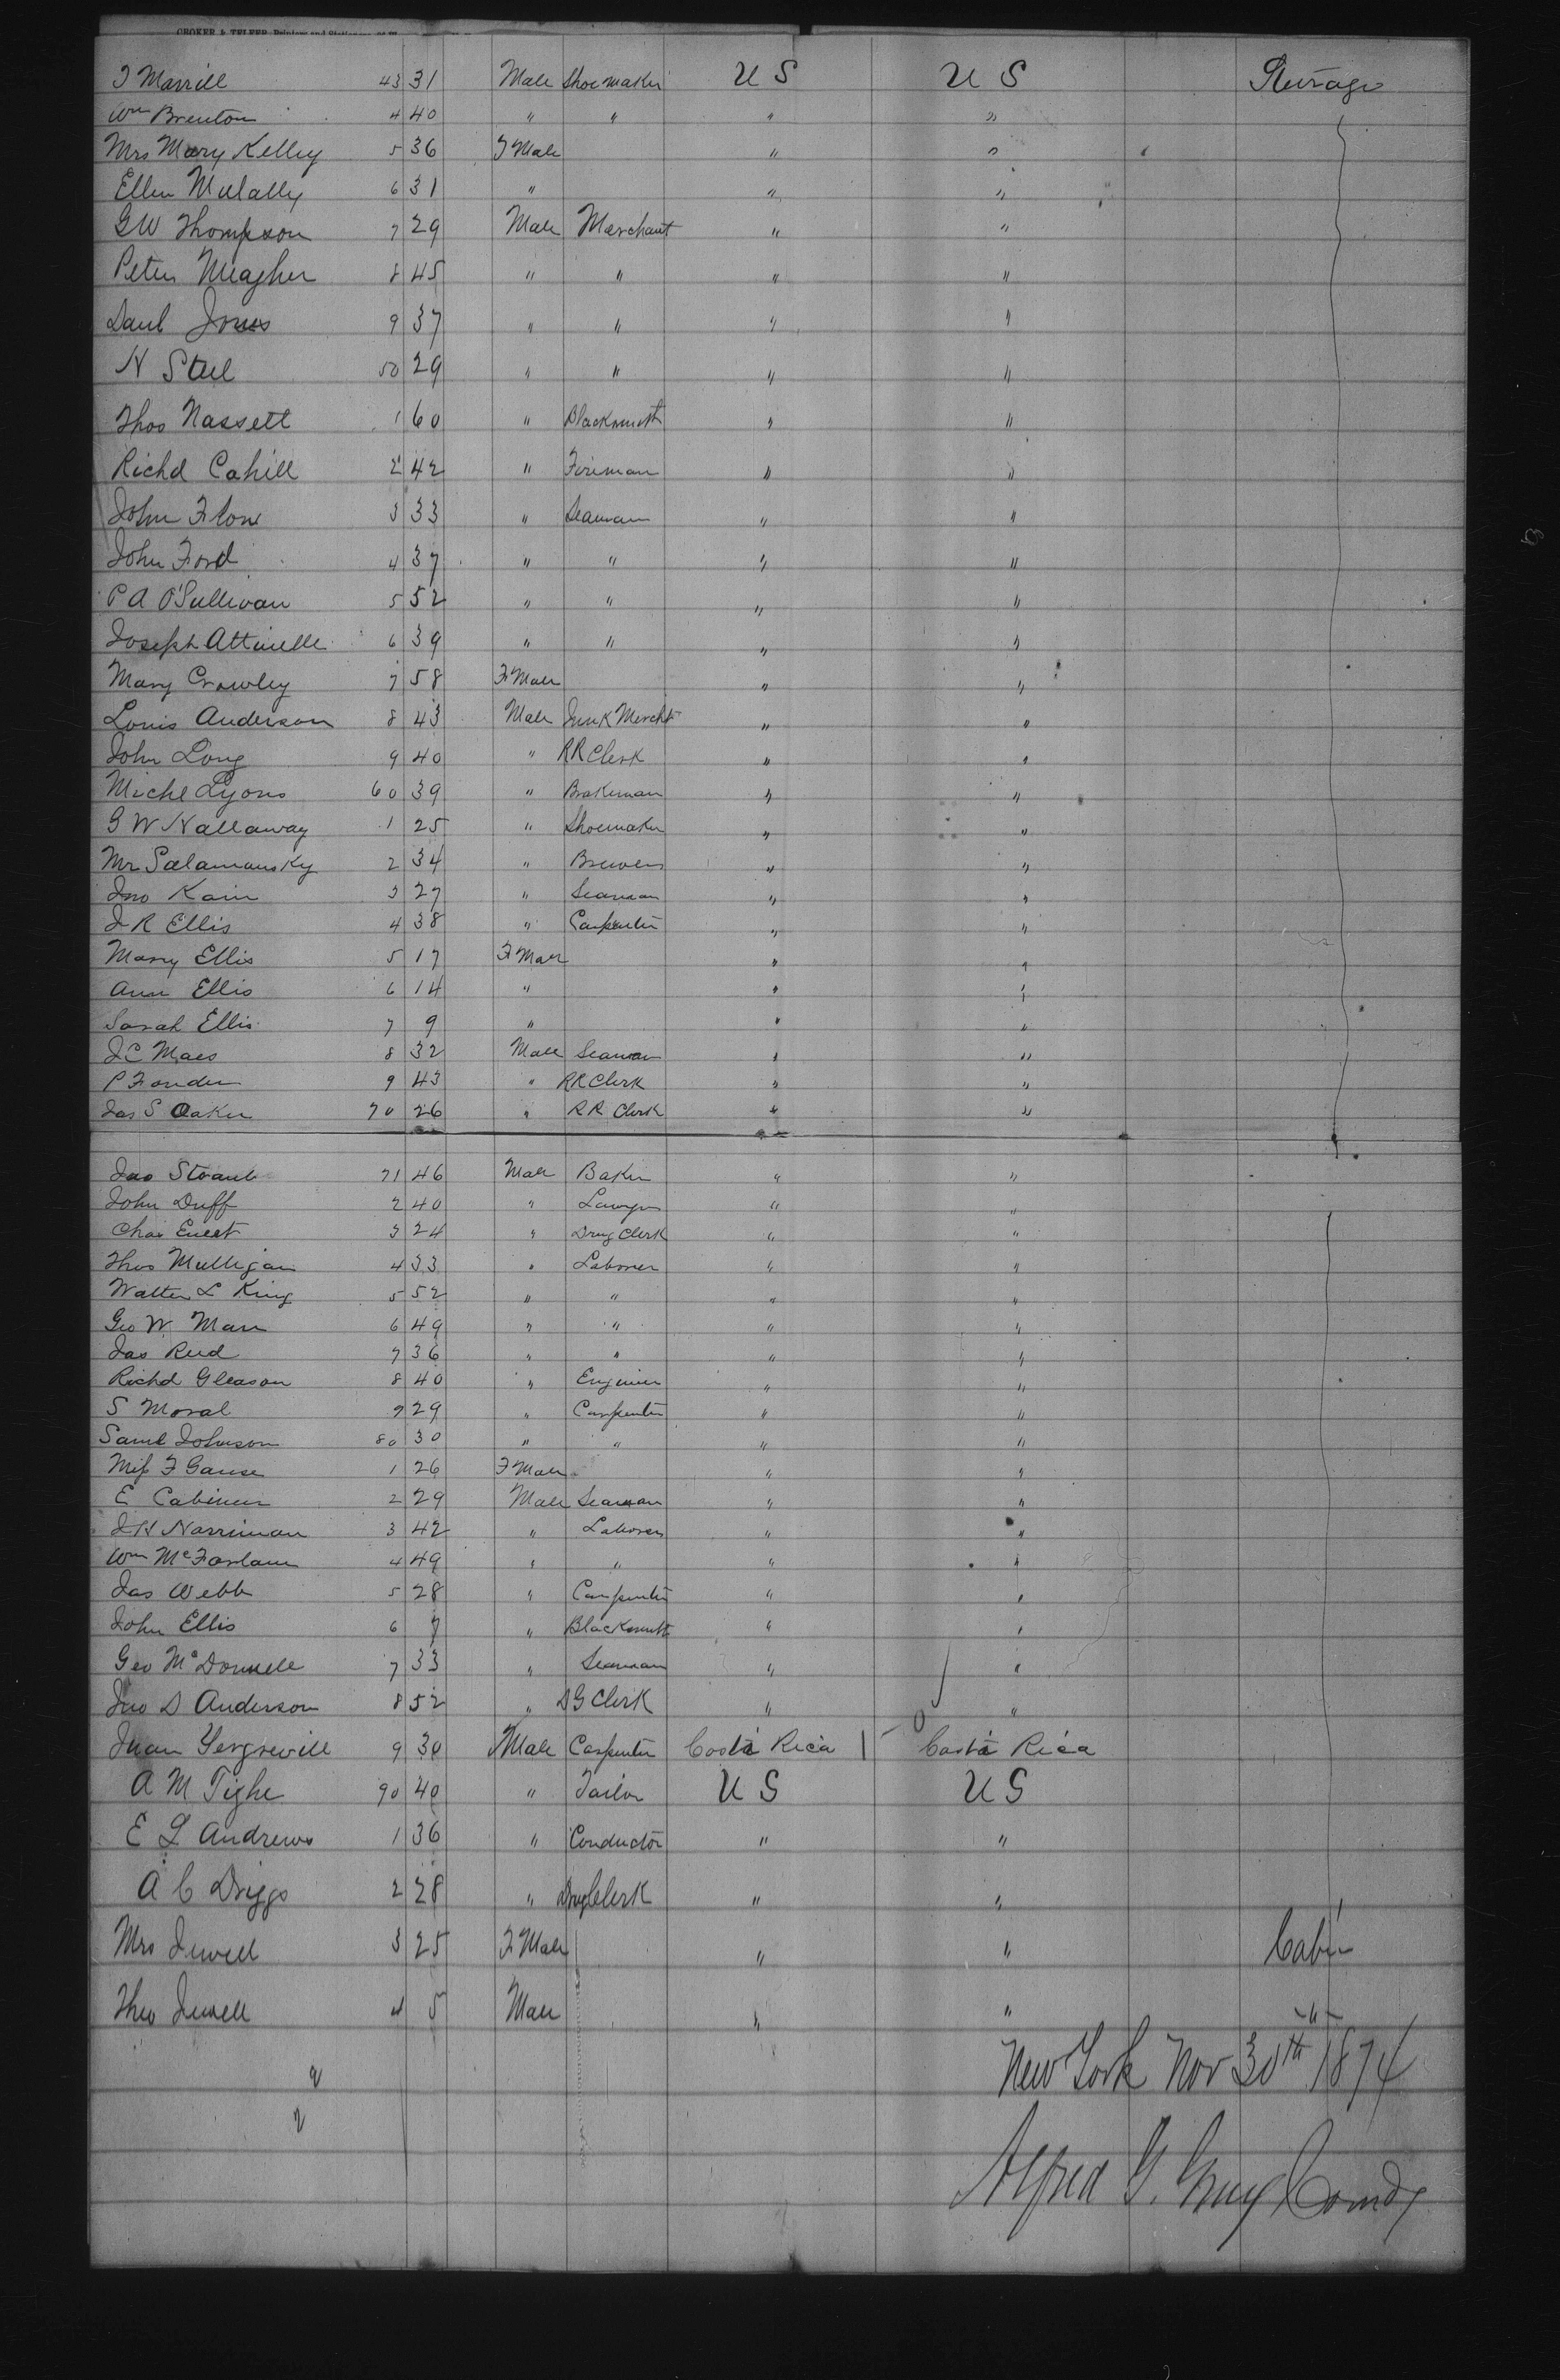 CROKER & TELFER, Printers and Stationers
T Merrill 43 31 Male Shoemaker U S U S Steerage
Wm Brenton 4 40 " " " "
Mrs Mary Kelley 5 36 F Male " "
Ellen Mulally 6 31 " " "
G W Thompson 7 29 Male Merchant " "
Peter Meagher 8 45 " " " "
Danl Jones 9 37 " " " "
H Steel 50 29 " " " "
Thos Hassett 1 60 " Blacksmith " "
Richd Cahill 2 42 " Fireman " "
John Flow 3 33 " Seaman " "
John Ford 4 37 " " " "
P A O'Sullivan 5 52 " " " "
Joseph 6 39 " " " "
Mary Crowley 7 58 F Male " "
Louis Anderson 8 43 Male Junk Mercht " "
John Long 9 40 " RR Clerk " "
Michl Lyons 60 39 " Brakeman " "
G W Hallaway 1 25 " Shoemaker " "
Mr Salamansky 2 34 " Brewer " "
Jno Kain 3 27 " Seaman " "
J R Ellis 4 38 " Carpenter " "
Mary Ellis 5 17 F Male " "
Ann Ellis 6 14 " " "
Sarah Ellis 7 9 " " "
J C Maes 8 32 Male Seaman " "
P 9 43 " RR Clerk " "
Jas S Oaker 70 26 " R R Clerk " "
Jno Straub 71 46 Male Baker " "
John Duff 2 40 " Lawyer " "
Chas 3 24 " Drug Clerk " "
Thos Mulligan 4 33 " Laborer " "
Walter L King 5 52 " " " "
Geo W Marr 6 49 " " " "
Jas Reid 7 36 " " " "
Richd Gleason 8 40 " Engineer " "
S Moral 9 29 " Carpenter " "
Saml Johnson 80 30 " " " "
Miss F Gause 1 26 F Male " "
E 2 29 Male Seaman " "
J H Harriman 3 42 " Laborer " "
Wm McFarlane 4 49 " " " "
Jas Webb 5 28 " Carpenter " "
John Ellis 6 7 " Blacksmith " "
Geo McDonnell 7 33 " Seaman " "
Jno D Anderson 8 52 " D G Clerk " "
Juan 9 30 Male Carpenter Costa Rica Costa Rica
A M Tighe 90 40 " Tailor U S U S
E L Andrews 1 36 " Conductor " "
A C Driggs 2 28 " Drug Clerk " "
Mrs Jewell 3 25 F Male " " Cabin
Theo Jewell 4 5 Male " " "
New York Nov 30th 1874
Alfred G. Gray Comdg